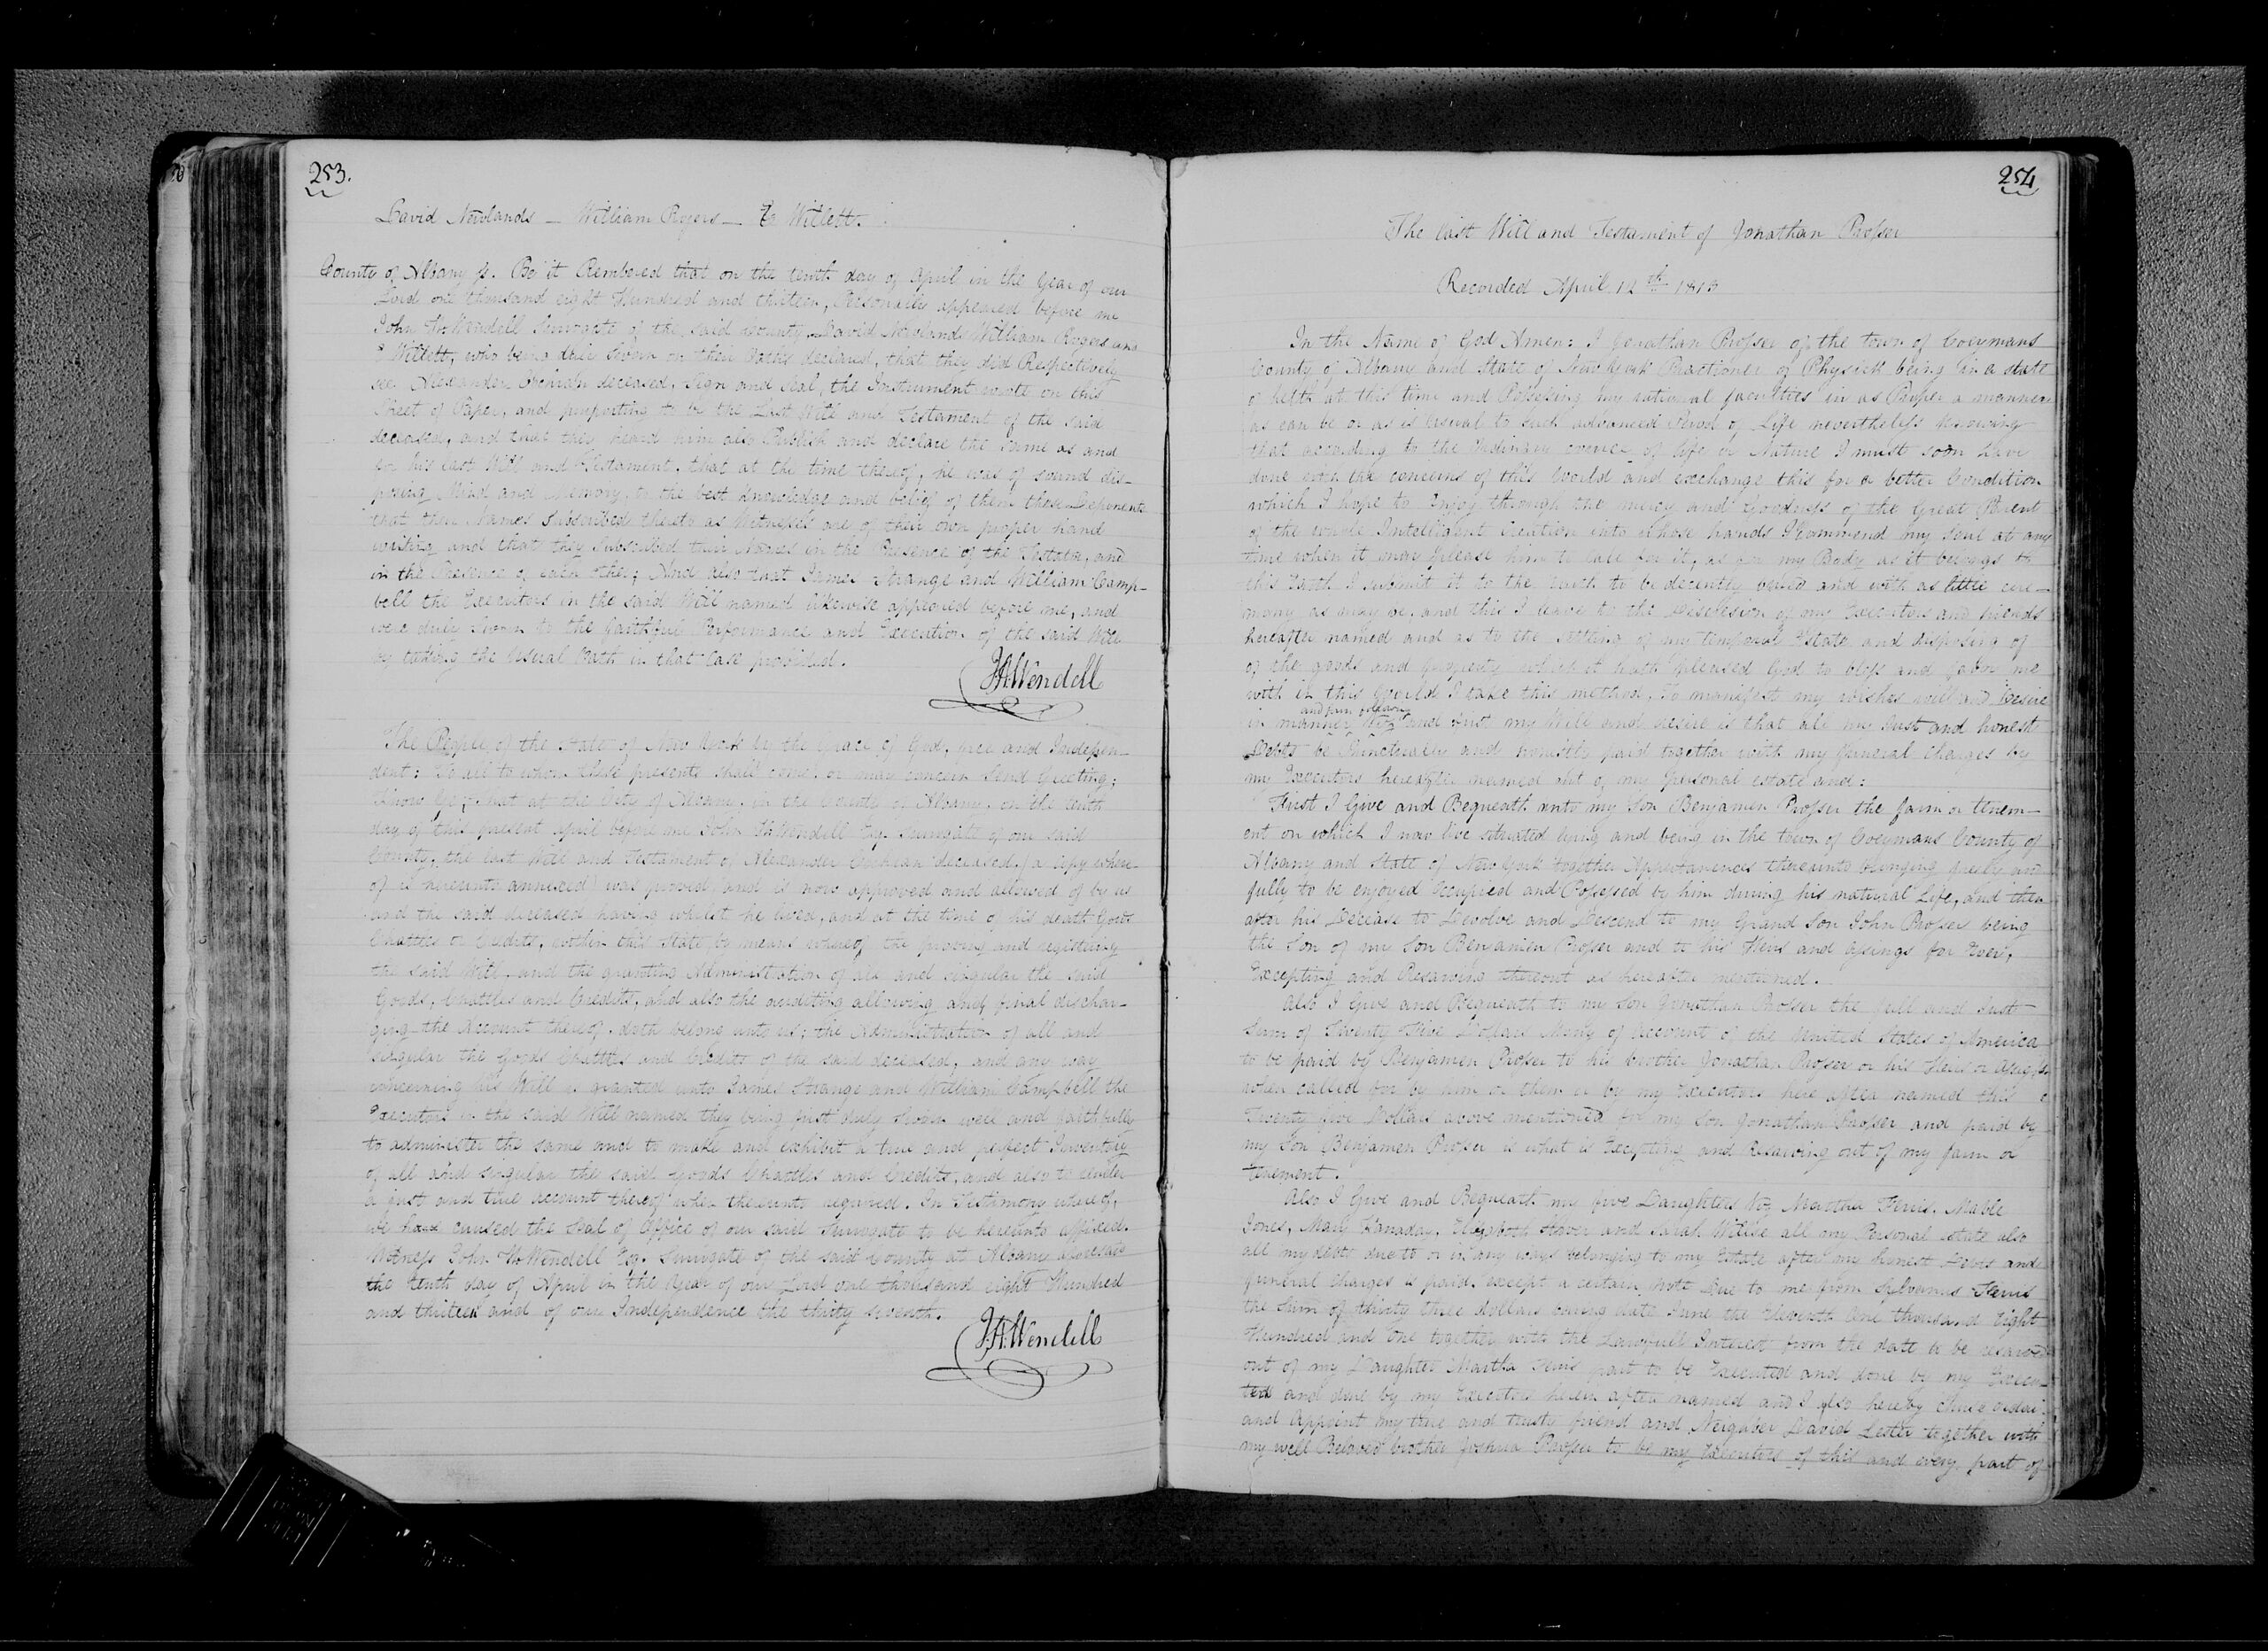 253.
David Newlands — William Rogers — & Willett.
County of Albany ss. Be it Rembered that on the tenth day of April in the Year of our
Lord one thousand eight Hundred and thirteen, Personally appeared before me
John H. Wendell Surrogate of the said County David Newlands William Rogers and
Willett, who being duly Sworn on their Oaths declared, that they did Respectively
see Alexander deceased, Sign and Seal, the Instrument wrote on this
Sheet of Paper, and purporting to be the Last Will and Testament of the said
deceased, and that they heard him also Publish and declare the Same as and
for his last Will and Testament, that at the time thereof, he was of sound dis-
posing Mind and Memory, to the best knowledge and belief of them these Deponents
that their Names Subscribed thereto as Witnesses are of their own proper hand
writing and that they Subscribed their Names in the Presence of the Testator, and
in the Presence of each other; And also that James Strange and William Camp-
bell the Executors in the said Will named likewise appeared before me, and
were duly Sworn to the faithful Performance and Execution of the said Will
by taking the usual Oath in that Case provided.
JHWendell
The People of the State of New York by the Grace of God, free and Indepen-
dent: To all to whom these presents shall come or may concern Send Greeting;
Know Ye, that at the City of Albany, in the County of Albany, on the tenth
day of this present April before me John H. Wendell Esq. Surrogate of our said
County, the last Will and Testament of Alexander deceased, (a Copy where-
of is hereunto annexed) was proved, and is now approved and allowed of by us
and the said deceased having whilst he lived, and at the time of his death Goods
Chattles or Credits, within this State, by means whereof the proving and registering
the said Will, and the granting Administration of all and singular the said
Goods, Chattles and Credits, and also the auditing allowing and final dischar-
ging the Account thereof, doth belong unto us; the Administration of all and
singular the Goods Chattles and Credits of the said deceased, and any way
concerning his Will is granted unto James Strange and William Campbell the
Executors in the said Will named they being first duly Sworn well and faithfully
to administer the same and to make and exhibit a true and perfect Inventory
of all and singular the said Goods Chattles and Credits, and also to render
a just and true account thereof when thereunto required. In Testimony whereof,
we have caused the Seal of Office of our said Surrogate to be hereunto affixed.
Witness John H. Wendell Esq. Surrogate of the said County at Albany aforesaid
the tenth day of April in the Year of our Lord one thousand eight Hundred
and thirteen and of our Independence the thirty seventh.
JHWendell
254
The last Will and Testament of Jonathan Prosser
Recorded April 12th 1813
In the Name of God Amen: I Jonathan Prosser of the town of Coeymans
County of Albany and State of New York Practioner of Physick being in a state
of helth at this time and Possesing my rational faculties in as Proper a manner
as can be or as is usual to such advanced Period of Life nevertheless knowing
that according to the Ordinary course of life or Nature I must soon have
done with the concerns of this World and exchange this for a better Condition
which I hope to Enjoy through the mercy and Goodness of the Great Parent
of the whole Intelligent Creation into whose hands I Commend my Soul at any
time when it may please him to call for it, as for my Body as it belongs to
this Earth I submit it to the earth to be decently buried and with as little cere-
mony as may be, and this I leave to the Discresion of my Executors and friends
hereafter named and as to the settling of my temporal Estate and disposing of
of the goods and property which it hath pleased God to bless and favor me
with in this World I take this method, To manifest my wishes will and Desire
in manner and form following Viz and first my Will and desire is that all my Just and honest
Debts be Punctually and honestly paid together with my funeral Charges by
my Executors hereafter named out of my personal estate and:
First I Give and Bequeath unto my Son Benjamen Prosser the farm or tenem-
ent on which I now live situated lying and being in the town of Coeymans County of
Albany and State of New York together Appurtanences thereunto belonging freely and
fully to be enjoyed Occupied and Possesed by him during his natural Life, and then
after his Decease to Devolve and Descend to my Grand Son John Prosser being
the Son of my Son Benjamen Prosser and to his Heirs and asings for Ever,
Excepting and Resarving thereout as hereafter mentioned.
Also I Give and Bequeath to my Son Jonathan Prosser the full and Just
Sum of Twenty Five Dollars Mony of account of the United States of America
to be paid by Benjamen Prosser to his brother Jonathan Prosser or his Heirs or asigns
when called for by him or them or by my Executors here after named this
Twenty five Dollars above mentioned for my Son Jonathan Prosser and paid by
my Son Benjamen Prosser is what is Excepting and Resarving out of my farm or
tenement.
Also I Give and Bequeath my five Daughters Viz Marther Ferris, Mable
Jones, Mary Kanaday, Elizabeth Stover and Sarah Willse all my Personal estate also
all my debts due to or in any ways belonging to my Estate after my honest Debts and
funeral Charges is paid, except a certain Note Due to me from Sylvanus Ferris
the Sum of thirty three dollars baring date June the Eleventh One thousand Eight
Hundred and One together with the Lawfull Interest from the date to be resarved
out of my Daughter Martha Ferris part to be Executed and done by my Execu-
ted and done by my Executors herein after named and I also hereby
and Appoint my true and trusty friend and Neighber David Lester together with
my well Beloved brother Joshua Prosser to be my Executors of this and every part of